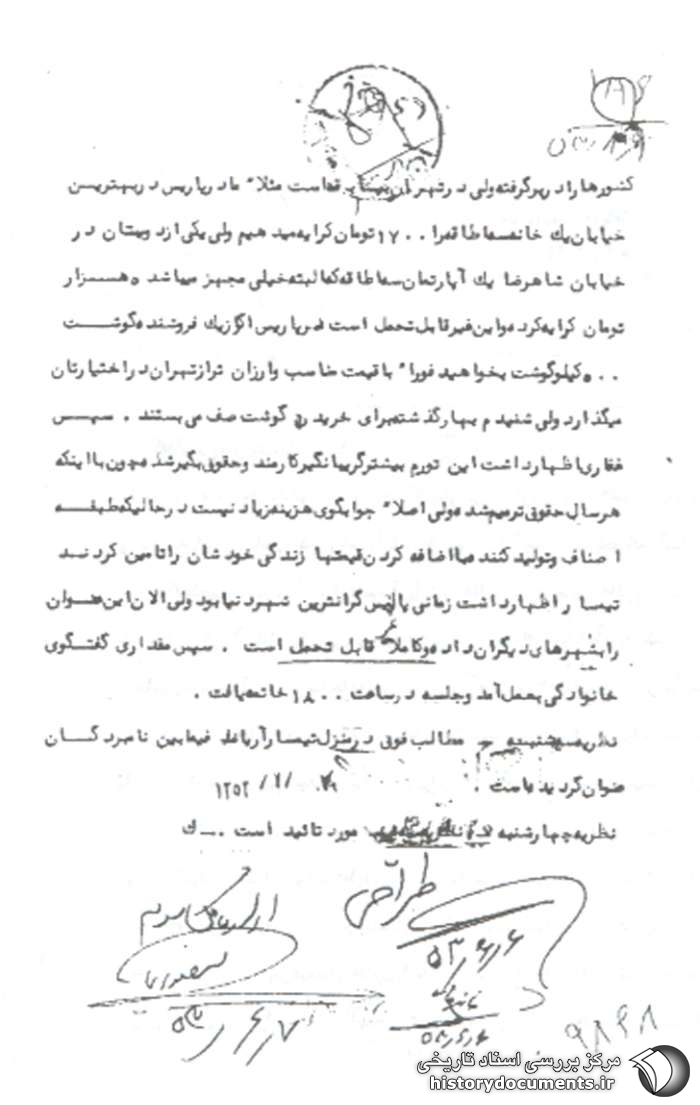 کشورها را در بر گرفته ولی در شهر است مثلا" ما در پاریس در بهترین
خیابان یک خانه سه اطاقه را ۱۷۰۰ تومان کرایه میدهیم ولی یکی از دوستان در
خیابان شاهرضا یک آپارتمان سه اطاقه که البته خیلی مجهز میباشد ۵ هزار
تومان کرایه کرده و این غیر قابل تحمل است در پاریس اگر از یک فروشنده گوشت
۵۰۰ کیلو گوشت بخواهید فورا" با قیمت مناسب و ارزان تر از تهران در اختیارتان
میگذارد ولی شنیدم بهار گذشته برای خرید گوشت صف می بستند . سپس
غفاری اظهار داشت این تورم بیشتر گریبانگیر کارمند و حقوق بگیر شده چون با اینکه
هر سال حقوق ترمیم شده ولی اصلا" جوابگوی هزینه زیاد نیست در حالیکه طبقه
اصناف و تولید کننده با اضافه کردن قیمتها زندگی خودشان را تامین کردند
تیمسار اظهار داشت زمانی پاریس گرانترین شهر دنیا بود ولی الان این عنوان
را بشهرهای دیگران داده و کاملا" قابل تحمل است . سپس مقداری گفتگوی
خانوادگی بعمل آمد و جلسه در ساعت ۱۸۰۰ خاتمه یافت .
نظریه سه شنبه - مطالب فوق در منزل تیمسار آریانا فیمابین نامبردگان
عنوان گردیده است .
نظریه چهارشنبه مورد تائید است . ک
۵۳/۶/۶
۵۳/۶/۶
۵۳/۶/۷
۹۸۶۸
مرکز بررسی اسناد تاریخی
historydocuments.ir